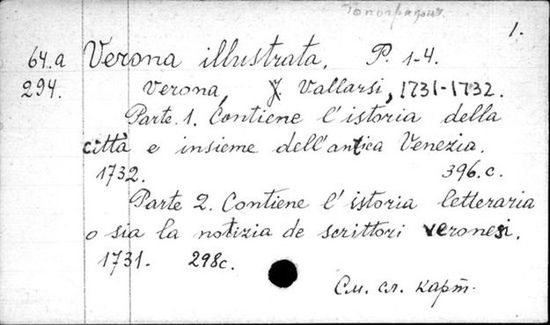 Топография.
1.
64.a Verona illustrata. P. 1-4.
294. Verona, J. Vallarsi, 1731-1732.
Parte. 1. Contiene l'istoria della
città e insieme dell'antica Venezia.
1732. 396.c.
Parte 2. Contiene l'istoria letteraria
o sia la notizia de scrittori veronesi.
1731. 298c.
См. сл. карт.